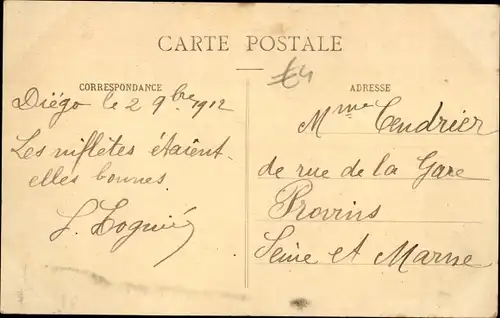 CARTE POSTALE
CORRESPONDANCE
Diégo le 2 9bre 1912
Les niflètes étaient-
elles bonnes
ADRESSE
Mme Cendrier
de rue de la Gare
Provins
Seine et Marne